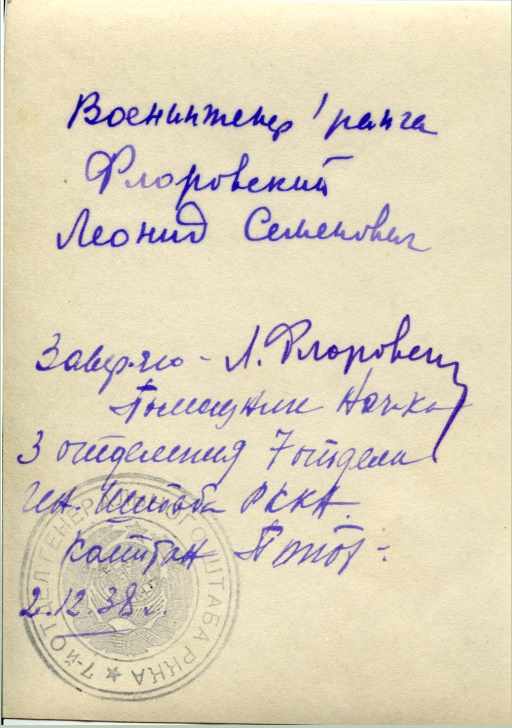 Военинженер 1 ранга
Флоровский
Леонид Семенович
Заверяю - Л. Флоровский
Помощник Нач-ка
3 отделения 7 отдела
Ген. Штаба РККА.
Капитан
2.12.38 г.
7-й ОТДЕЛ ГЕНЕРАЛЬНОГО ШТАБА РККА